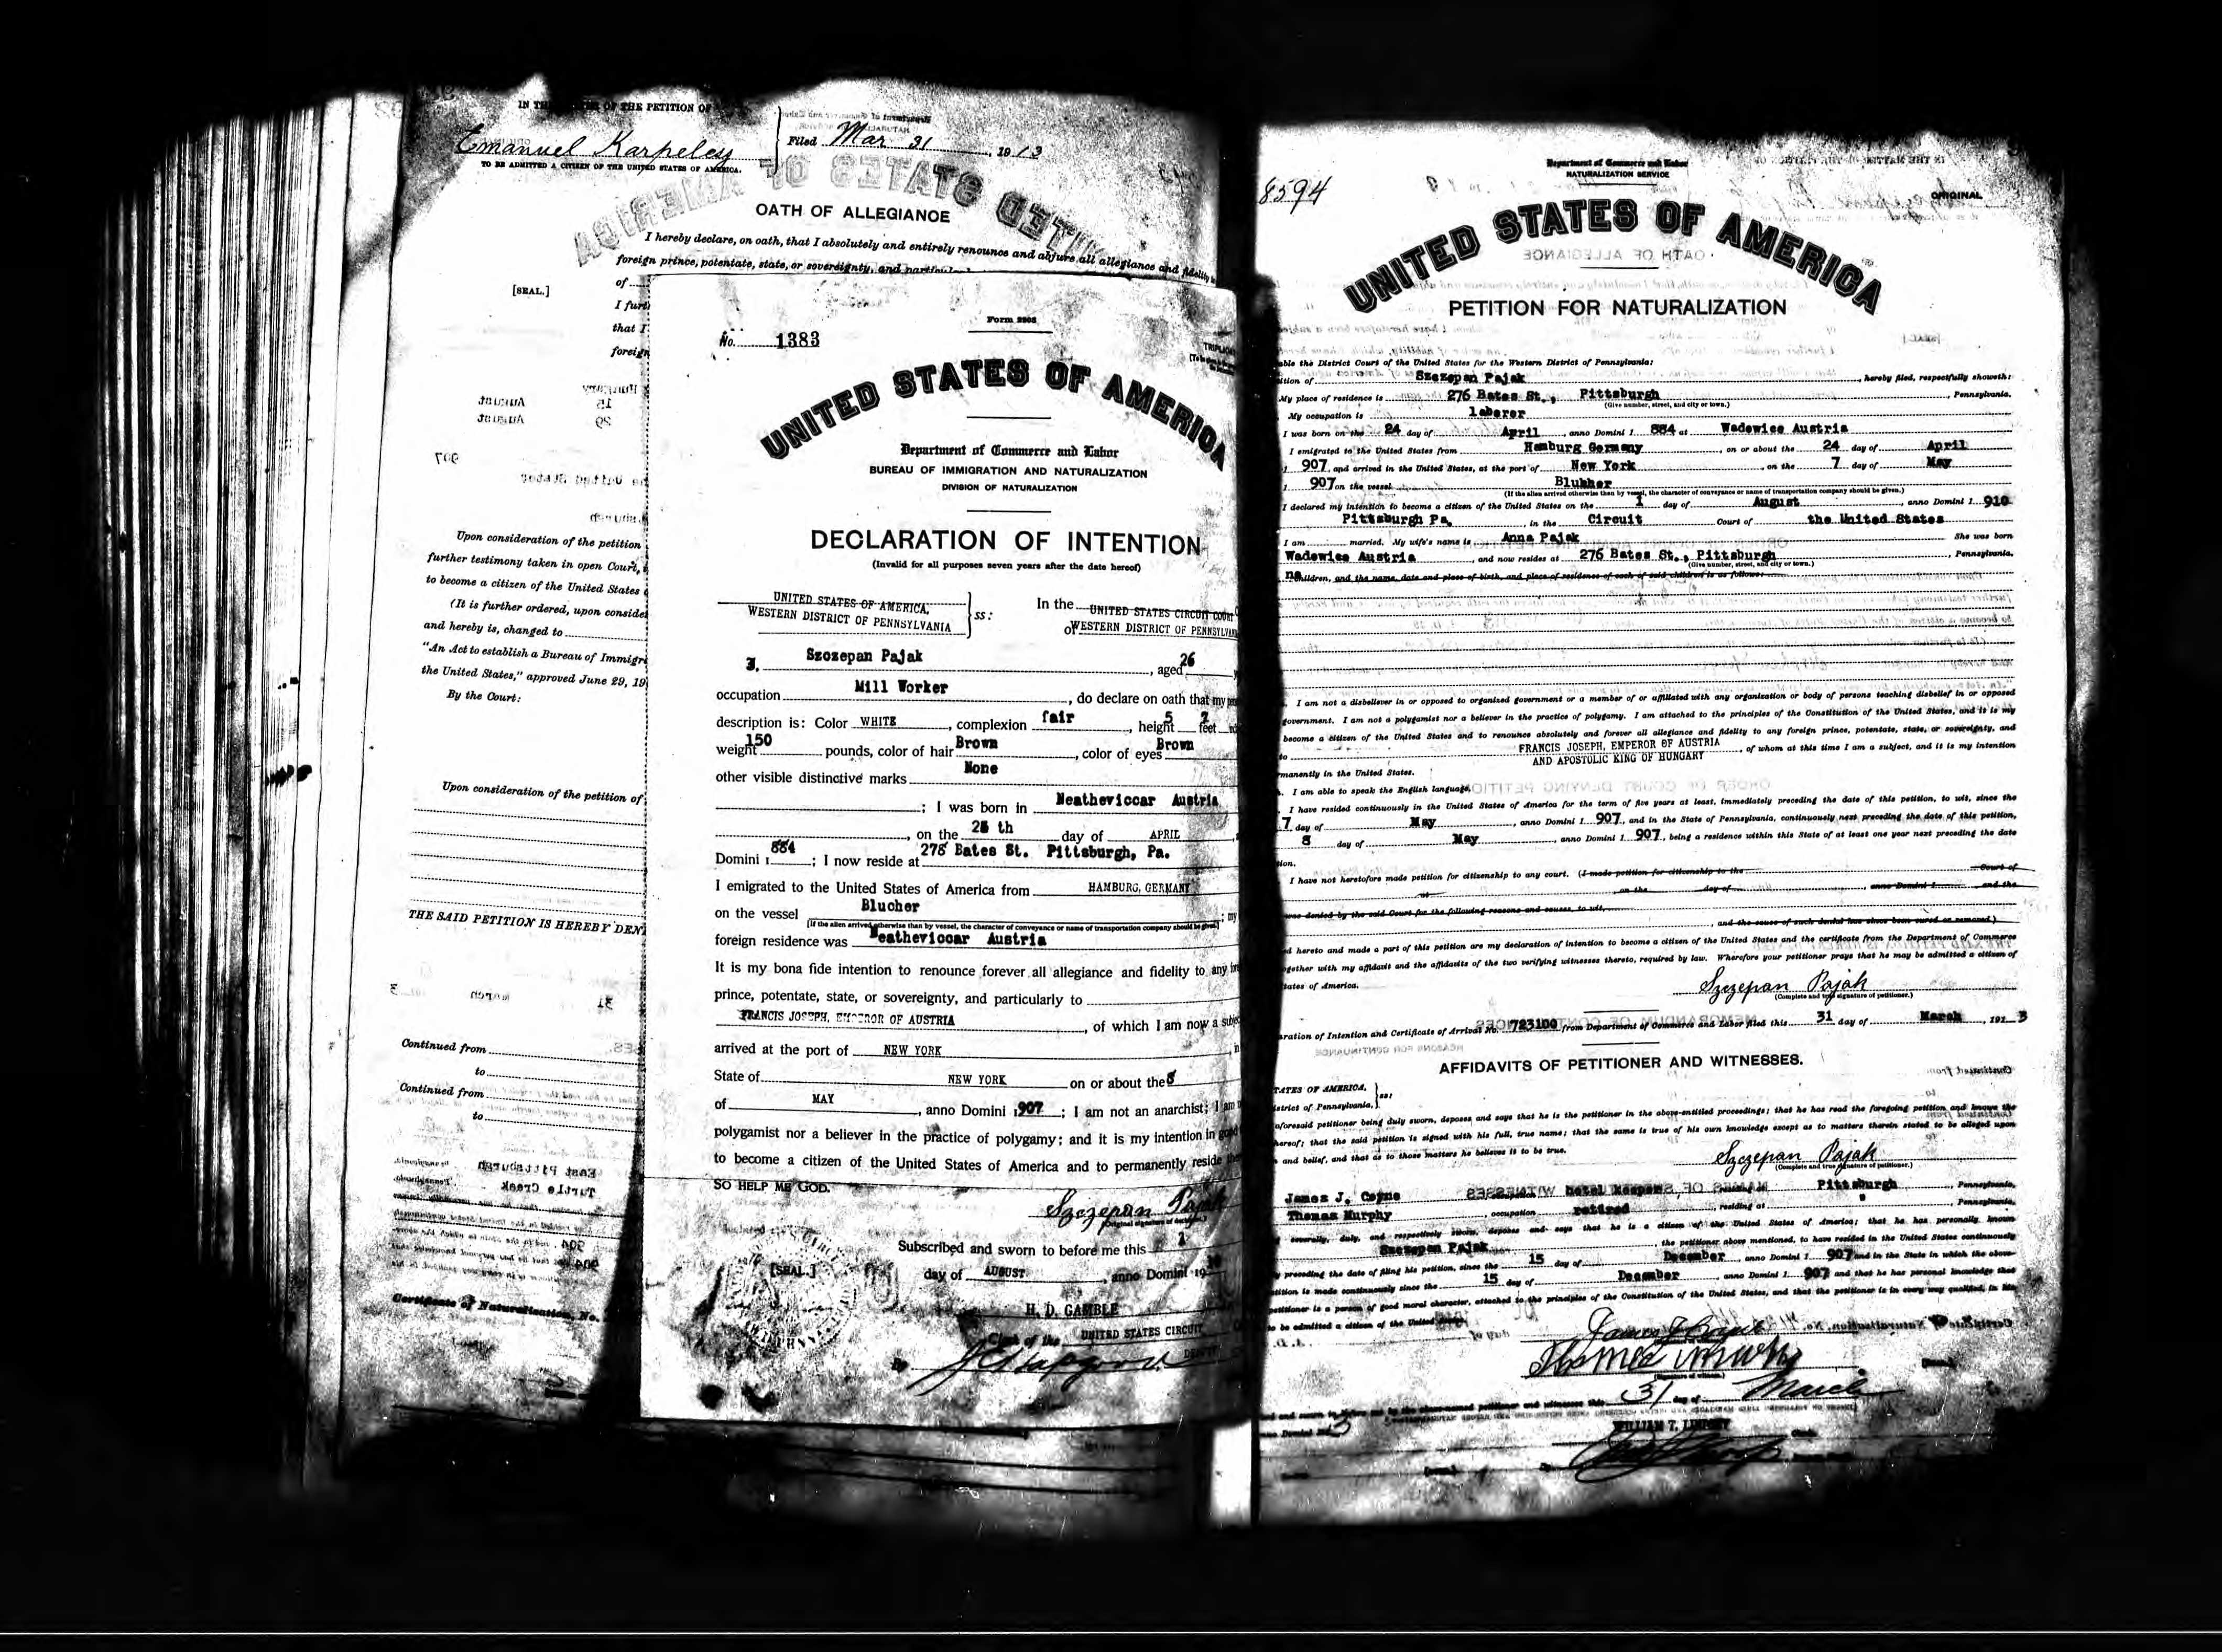 IN THE OF THE PETITION OF
Emanuel Karpeles
TO BE ADMITTED A CITIZEN OF THE UNITED STATES OF AMERICA.
Filed Mar 31, 1913
OATH OF ALLEGIANCE
I hereby declare, on oath, that I absolutely and entirely renounce and abjure all allegiance and fidelity
foreign prince, potentate, state, or sovereignty, and
of
[SEAL.]
I
that I
foreign
Upon consideration of the petition
further testimony taken in open Court,
to become a citizen of the United States
(It is further ordered, upon
and hereby is, changed to
"An Act to establish a Bureau of
the United States," approved June 29, 19
By the Court:
Upon consideration of the petition of
THE SAID PETITION IS HEREBY
Continued from
to
Continued from
to
Certificate of Naturalization, No.
Form 2203
No. 1383
UNITED STATES OF AMERICA
Department of Commerce and Labor
BUREAU OF IMMIGRATION AND NATURALIZATION
DIVISION OF NATURALIZATION
DECLARATION OF INTENTION
(Invalid for all purposes seven years after the date hereof)
UNITED STATES OF AMERICA,
WESTERN DISTRICT OF PENNSYLVANIA
ss:
In the UNITED STATES CIRCUIT COURT
of WESTERN DISTRICT OF
I, Szczepan Pajak, aged 26
occupation Mill Worker, do declare on oath that my
description is: Color WHITE, complexion fair, height 5 feet
weight 150 pounds, color of hair Brown, color of eyes Brown
other visible distinctive marks None
; I was born in Neatheviccar Austria
, on the th day of APRIL
Domini 1 884; I now reside at Bates St. Pittsburgh, Pa.
I emigrated to the United States of America from HAMBURG, GERMANY
on the vessel Blucher
[If the alien arrived otherwise than by vessel, the character of conveyance or name of transportation company should be given]
foreign residence was Neatheviccar Austria
It is my bona fide intention to renounce forever all allegiance and fidelity to any
prince, potentate, state, or sovereignty, and particularly to
FRANCIS JOSEPH, EMPEROR OF AUSTRIA, of which I am now a
arrived at the port of NEW YORK
State of NEW YORK on or about the 8
of MAY, anno Domini 1907; I am not an anarchist; I am
polygamist nor a believer in the practice of polygamy; and it is my intention in
to become a citizen of the United States of America and to permanently reside
SO HELP ME GOD.
Szczepan Pajak
(Original signature of declarant.)
Subscribed and sworn to before me this 1
[SEAL.]
day of AUGUST, anno Domini 19
H. D. GAMBLE
Clerk of the UNITED STATES CIRCUIT
By
8594
Department of Commerce and Labor
NATURALIZATION SERVICE
ORIGINAL
UNITED STATES OF AMERICA
PETITION FOR NATURALIZATION
able the District Court of the United States for the Western District of Pennsylvania:
ition of Szczepan Pajak, hereby filed, respectfully showeth:
My place of residence is 276 Bates St., Pittsburgh, Pennsylvania.
(Give number, street, and city or town.)
My occupation is laborer
I was born on the 24 day of April, anno Domini 1 884 at Wadowice Austria
I emigrated to the United States from Hamburg Germany, on or about the 24 day of April
1 907, and arrived in the United States, at the port of New York, on the 7 day of May
1 907 on the vessel Blukher
(If the alien arrived otherwise than by vessel, the character of conveyance or name of transportation company should be given.)
I declared my intention to become a citizen of the United States on the 1 day of August, anno Domini 1 910
Pittsburgh Pa., in the Circuit Court of the United States
I am married. My wife's name is Anna Pajak She was born
Wadowice Austria, and now resides at 276 Bates St., Pittsburgh, Pennsylvania.
(Give number, street, and city or town.)
no children, and the name, date and place of birth, and place of residence of each of said children is as follows:
I am not a disbeliever in or opposed to organized government or a member of or affiliated with any organization or body of persons teaching disbelief in or opposed
government. I am not a polygamist nor a believer in the practice of polygamy. I am attached to the principles of the Constitution of the United States, and it is my
become a citizen of the United States and to renounce absolutely and forever all allegiance and fidelity to any foreign prince, potentate, state, or sovereignty, and
to FRANCIS JOSEPH, EMPEROR OF AUSTRIA AND APOSTOLIC KING OF HUNGARY, of whom at this time I am a subject, and it is my intention
rmanently in the United States.
I am able to speak the English language.
I have resided continuously in the United States of America for the term of five years at least, immediately preceding the date of this petition, to wit, since the
7 day of May, anno Domini 1 907, and in the State of Pennsylvania, continuously next preceding the date of this petition,
8 day of May, anno Domini 1 907, being a residence within this State of at least one year next preceding the date
tion.
I have not heretofore made petition for citizenship to any court. (I made petition for citizenship to the Court of
at on the day of, anno Domini 1 and the
was denied by the said Court for the following reasons and causes, to wit,
, and the cause of such denial has since been cured or removed.)
d hereto and made a part of this petition are my declaration of intention to become a citizen of the United States and the certificate from the Department of Commerce
gether with my affidavit and the affidavits of the two verifying witnesses thereto, required by law. Wherefore your petitioner prays that he may be admitted a citizen of
tates of America.
Szczepan Pajak
(Complete and true signature of petitioner.)
aration of Intention and Certificate of Arrival No. 723100 from Department of Commerce and Labor filed this 31 day of March, 191 3
AFFIDAVITS OF PETITIONER AND WITNESSES.
TATES OF AMERICA,
ss:
strict of Pennsylvania,
aforesaid petitioner being duly sworn, deposes and says that he is the petitioner in the above-entitled proceedings; that he has read the foregoing petition and knows the
hereof; that the said petition is signed with his full, true name; that the same is true of his own knowledge except as to matters therein stated to be alleged upon
n and belief, and that as to those matters he believes it to be true.
Szczepan Pajak
(Complete and true signature of petitioner.)
James J. Coyne hotel keeper Pittsburgh, Pennsylvania,
Thomas Murphy, occupation retired, residing at ", Pennsylvania,
severally, duly, and respectively sworn, deposes and says that he is a citizen of the United States of America; that he has personally known
Szczepan Pajak, the petitioner above mentioned, to have resided in the United States continuously
y preceding the date of filing his petition, since the 15 day of December, anno Domini 1 907 and in the State in which the above-
etition is made continuously since the 15 day of December, anno Domini 1 907 and that he has personal knowledge that
petitioner is a person of good moral character, attached to the principles of the Constitution of the United States, and that the petitioner is in every way qualified, in his
to be admitted a citizen of the United States.
James J Coyne
Thomas Murphy
(Signature of witness.)
31 day of March
3
WILLIAM T. LINDSEY